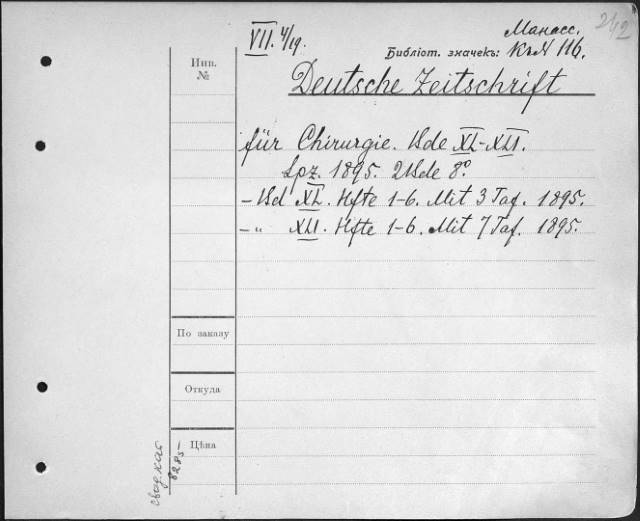 2142
VII. 4/19.
Манасс.
Библіот. значекъ: КъN 116.
Инв.
№
Deutsche Zeitschrift
für Chirurgie. Bde XL-XLI.
Lpz. 1895. 2 Bde 8º.
– Bd XL. Hfte 1-6. Mit 3 Taf. 1895.
– „ XLI. Hfte 1-6. Mit 7 Taf. 1895.
По заказу
Откуда
Цѣна
сводная
8285